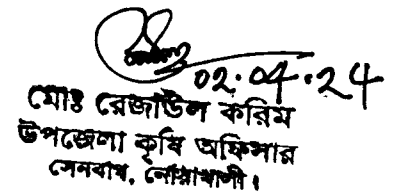 02.04.24
মোঃ রেজাউল করিম
উপজেলা কৃষি অফিসার
সেনবাগ, নোয়াখালী।